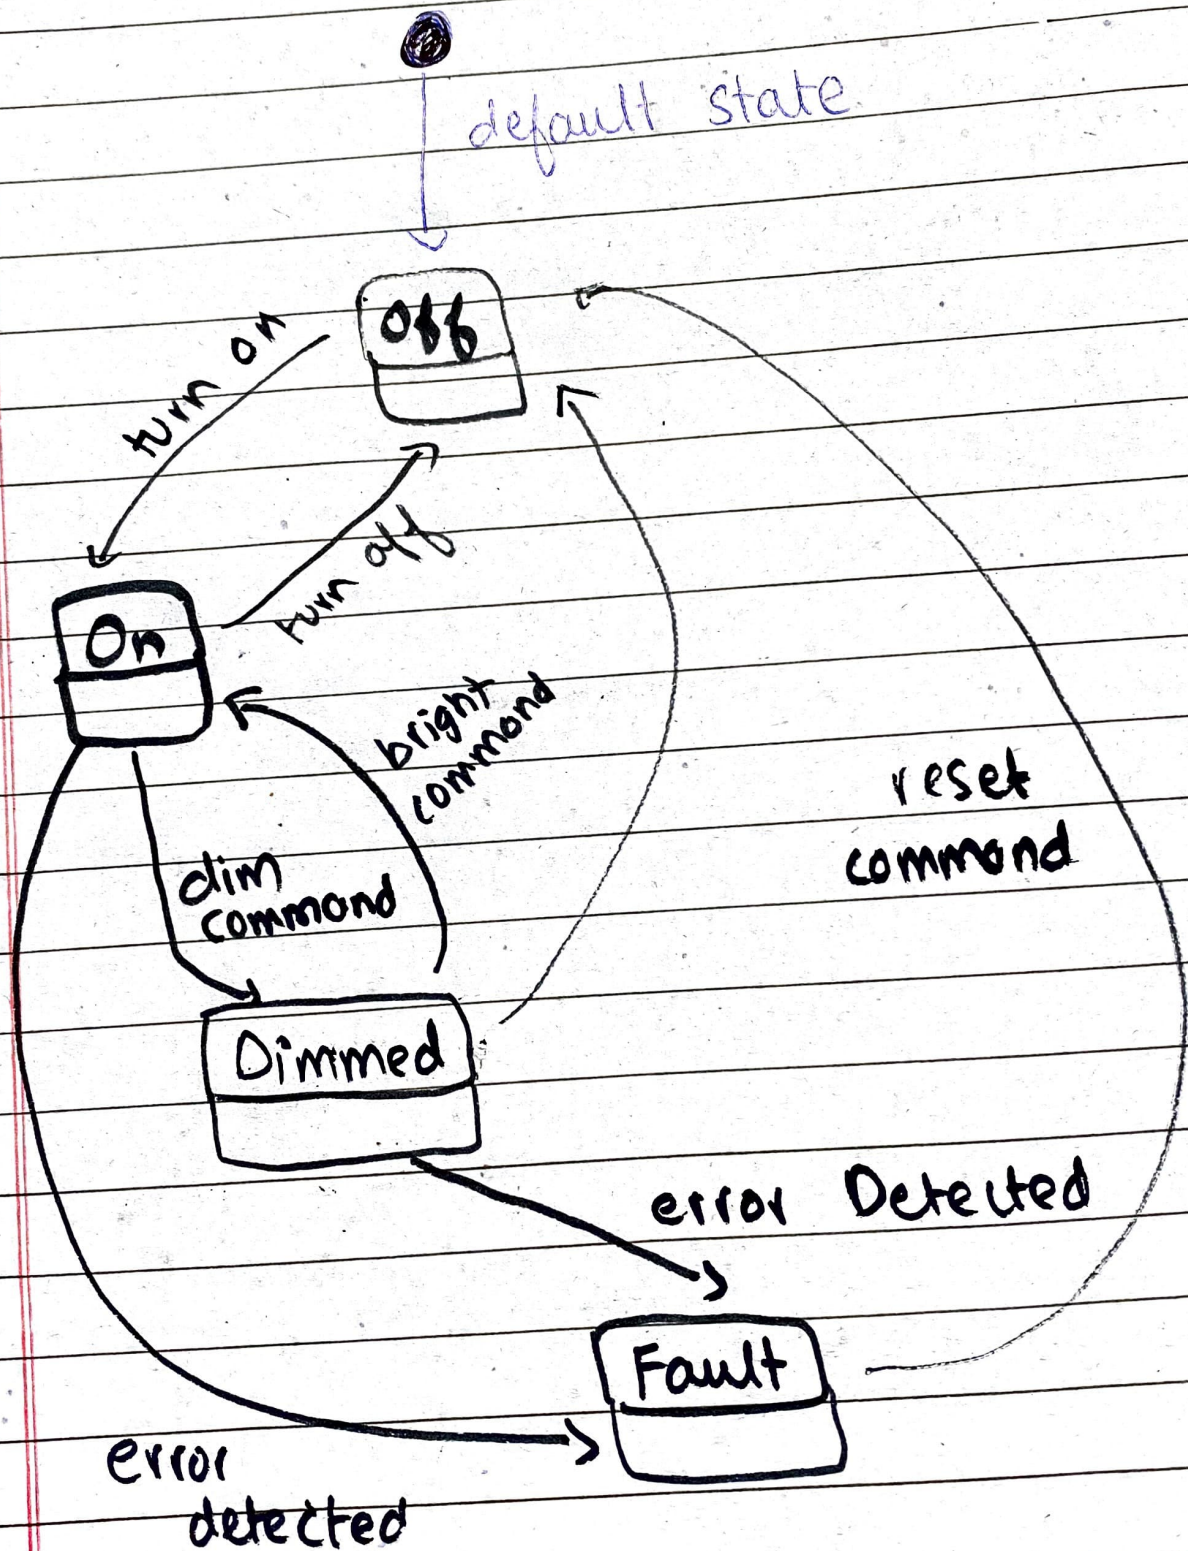 default state
Off
turn on
turn off
On
bright
command
reset
command
dim
command
Dimmed
error Detected
Fault
error
detected